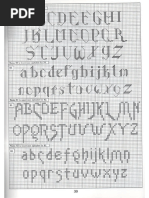 ABCDEFGHI
JKLMNOPQR
STUVWXYZ
abcdefghijklm
nopqrstuvwxyz
ABCDEFGHIJKLMN
OPQRSTUVWXYZ
abcdefghijklmn
opqrstuvwxyz